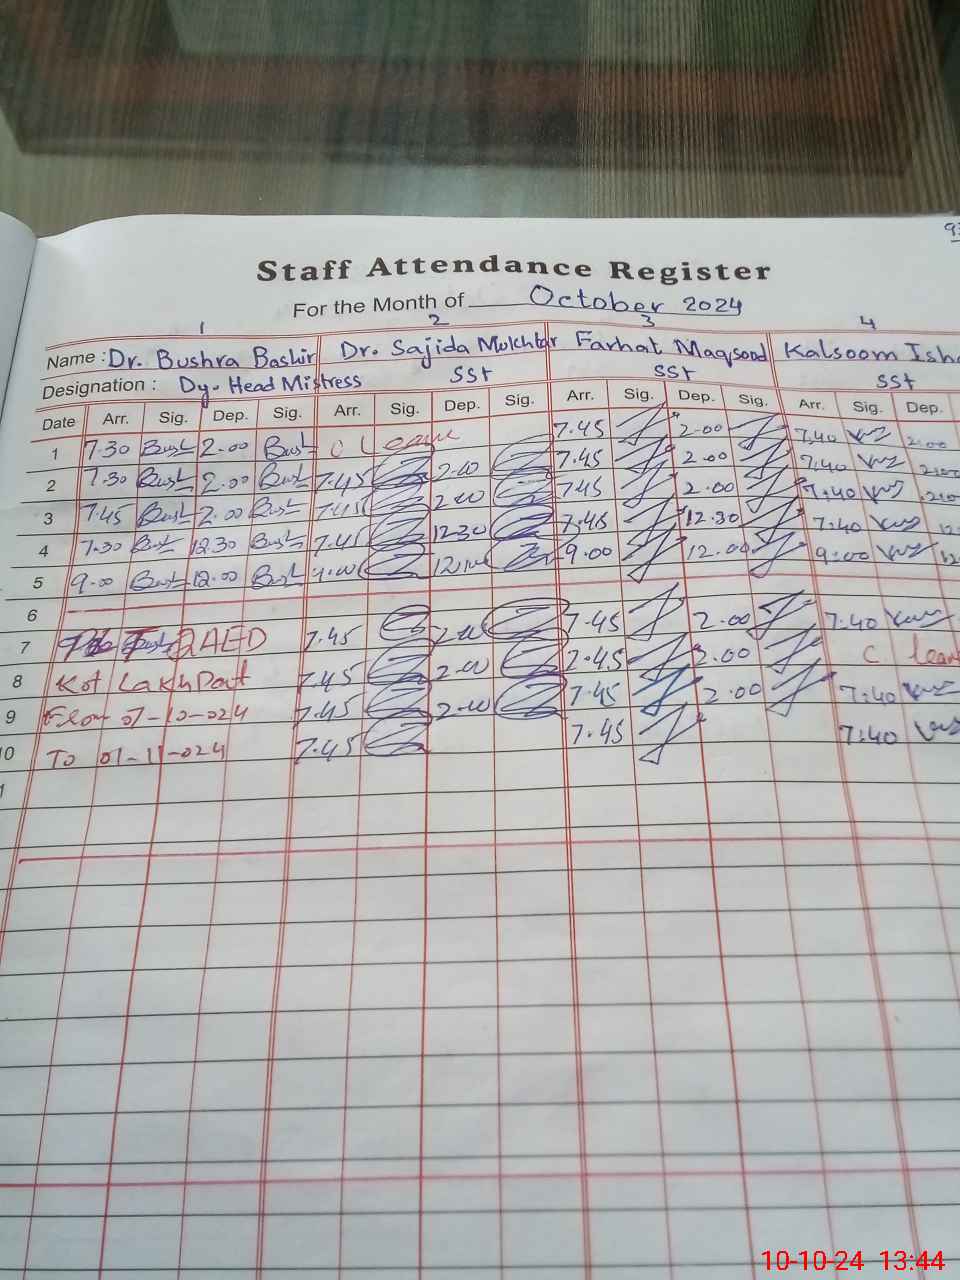 93
Staff Attendance Register
For the Month of October 2024
1 2 3 4
Name : Dr. Bushra Bashir Dr. Sajida Mukhtar Farhat Maqsood Kalsoom Ish
Designation : Dy. Head Mistress SSt SSt SSt
Date Arr. Sig. Dep. Sig. Arr. Sig. Dep. Sig. Arr. Sig. Dep. Sig. Arr. Sig. Dep.
1 7.30 2.00 C Leave 7.45 2.00 7:40 2:00
2 7.30 2.00 7.45 2.00 7.45 2.00 7:40 2:00
3 7.45 2.00 7.45 2.00 7.45 2.00 7:40 2:00
4 7.30 12.30 7.45 12.30 7.45 12.30 7:40 12
5 9.00 12.00 9.00 12.00 9.00 12.00 9:00 12
6
7 QAED 7.45 2.00 7.45 2.00 7:40
8 Kot Lakhpat 7.45 2.00 2.45 2.00 C leav
9 From 07-10-024 7.45 2.00 7.45 2.00 7:40
10 To 01-11-024 7.45 7.45 7:40
10-10-24 13:44